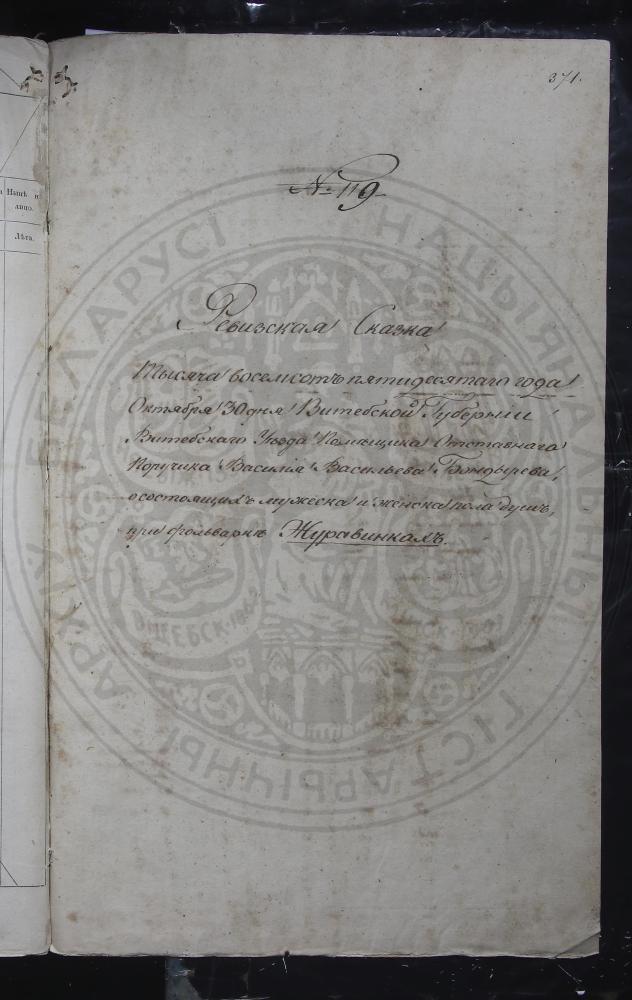 371.
№ 119
Ревизская Сказка
Тысяча восемсотъ пятидесятаго года
Октября 30 дня Витебской Губерніи
Витебскаго Уѣзда Помѣщика Отставнаго
Поручика Василія Васильева
о состоящихъ мужеска и женска пола душъ,
при фольваркѣ Журавинкахъ.
Нынѣ на
лицо.
Лѣта.
НАЦЫЯНАЛЬНЫ
ГІСТАРЫЧНЫ
АРХІЎ БЕЛАРУСІ